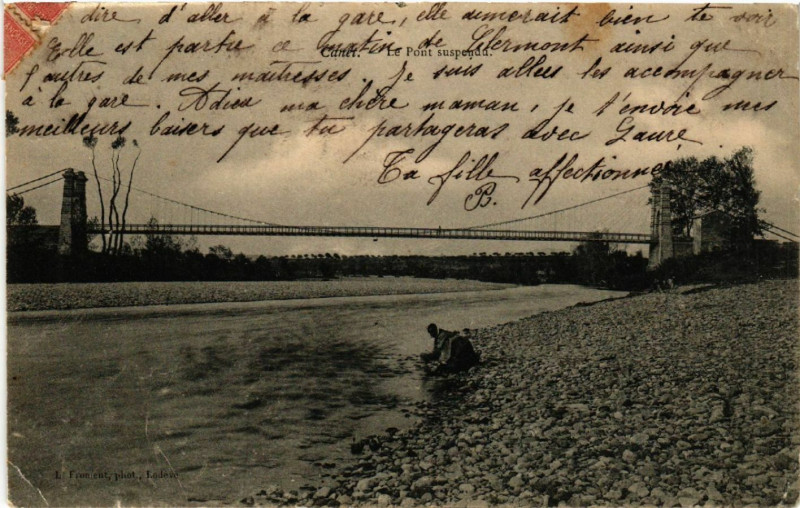 dire d'aller à la gare, elle aimerait bien te voir
Elle est partie ce matin de Clermont ainsi que
l'autres de mes maitresses. Je suis allées les accompagner
Canet. - Le Pont suspendu.
à la gare. Adieu ma chère maman, je t'envoie mes
meilleurs baisers que tu partageras avec Laure
Ta fille affectionnée
B.
L. Froment, phot., Lodève